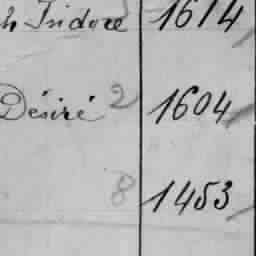 h Isidore 1614
Désiré 2 1604
8 1453